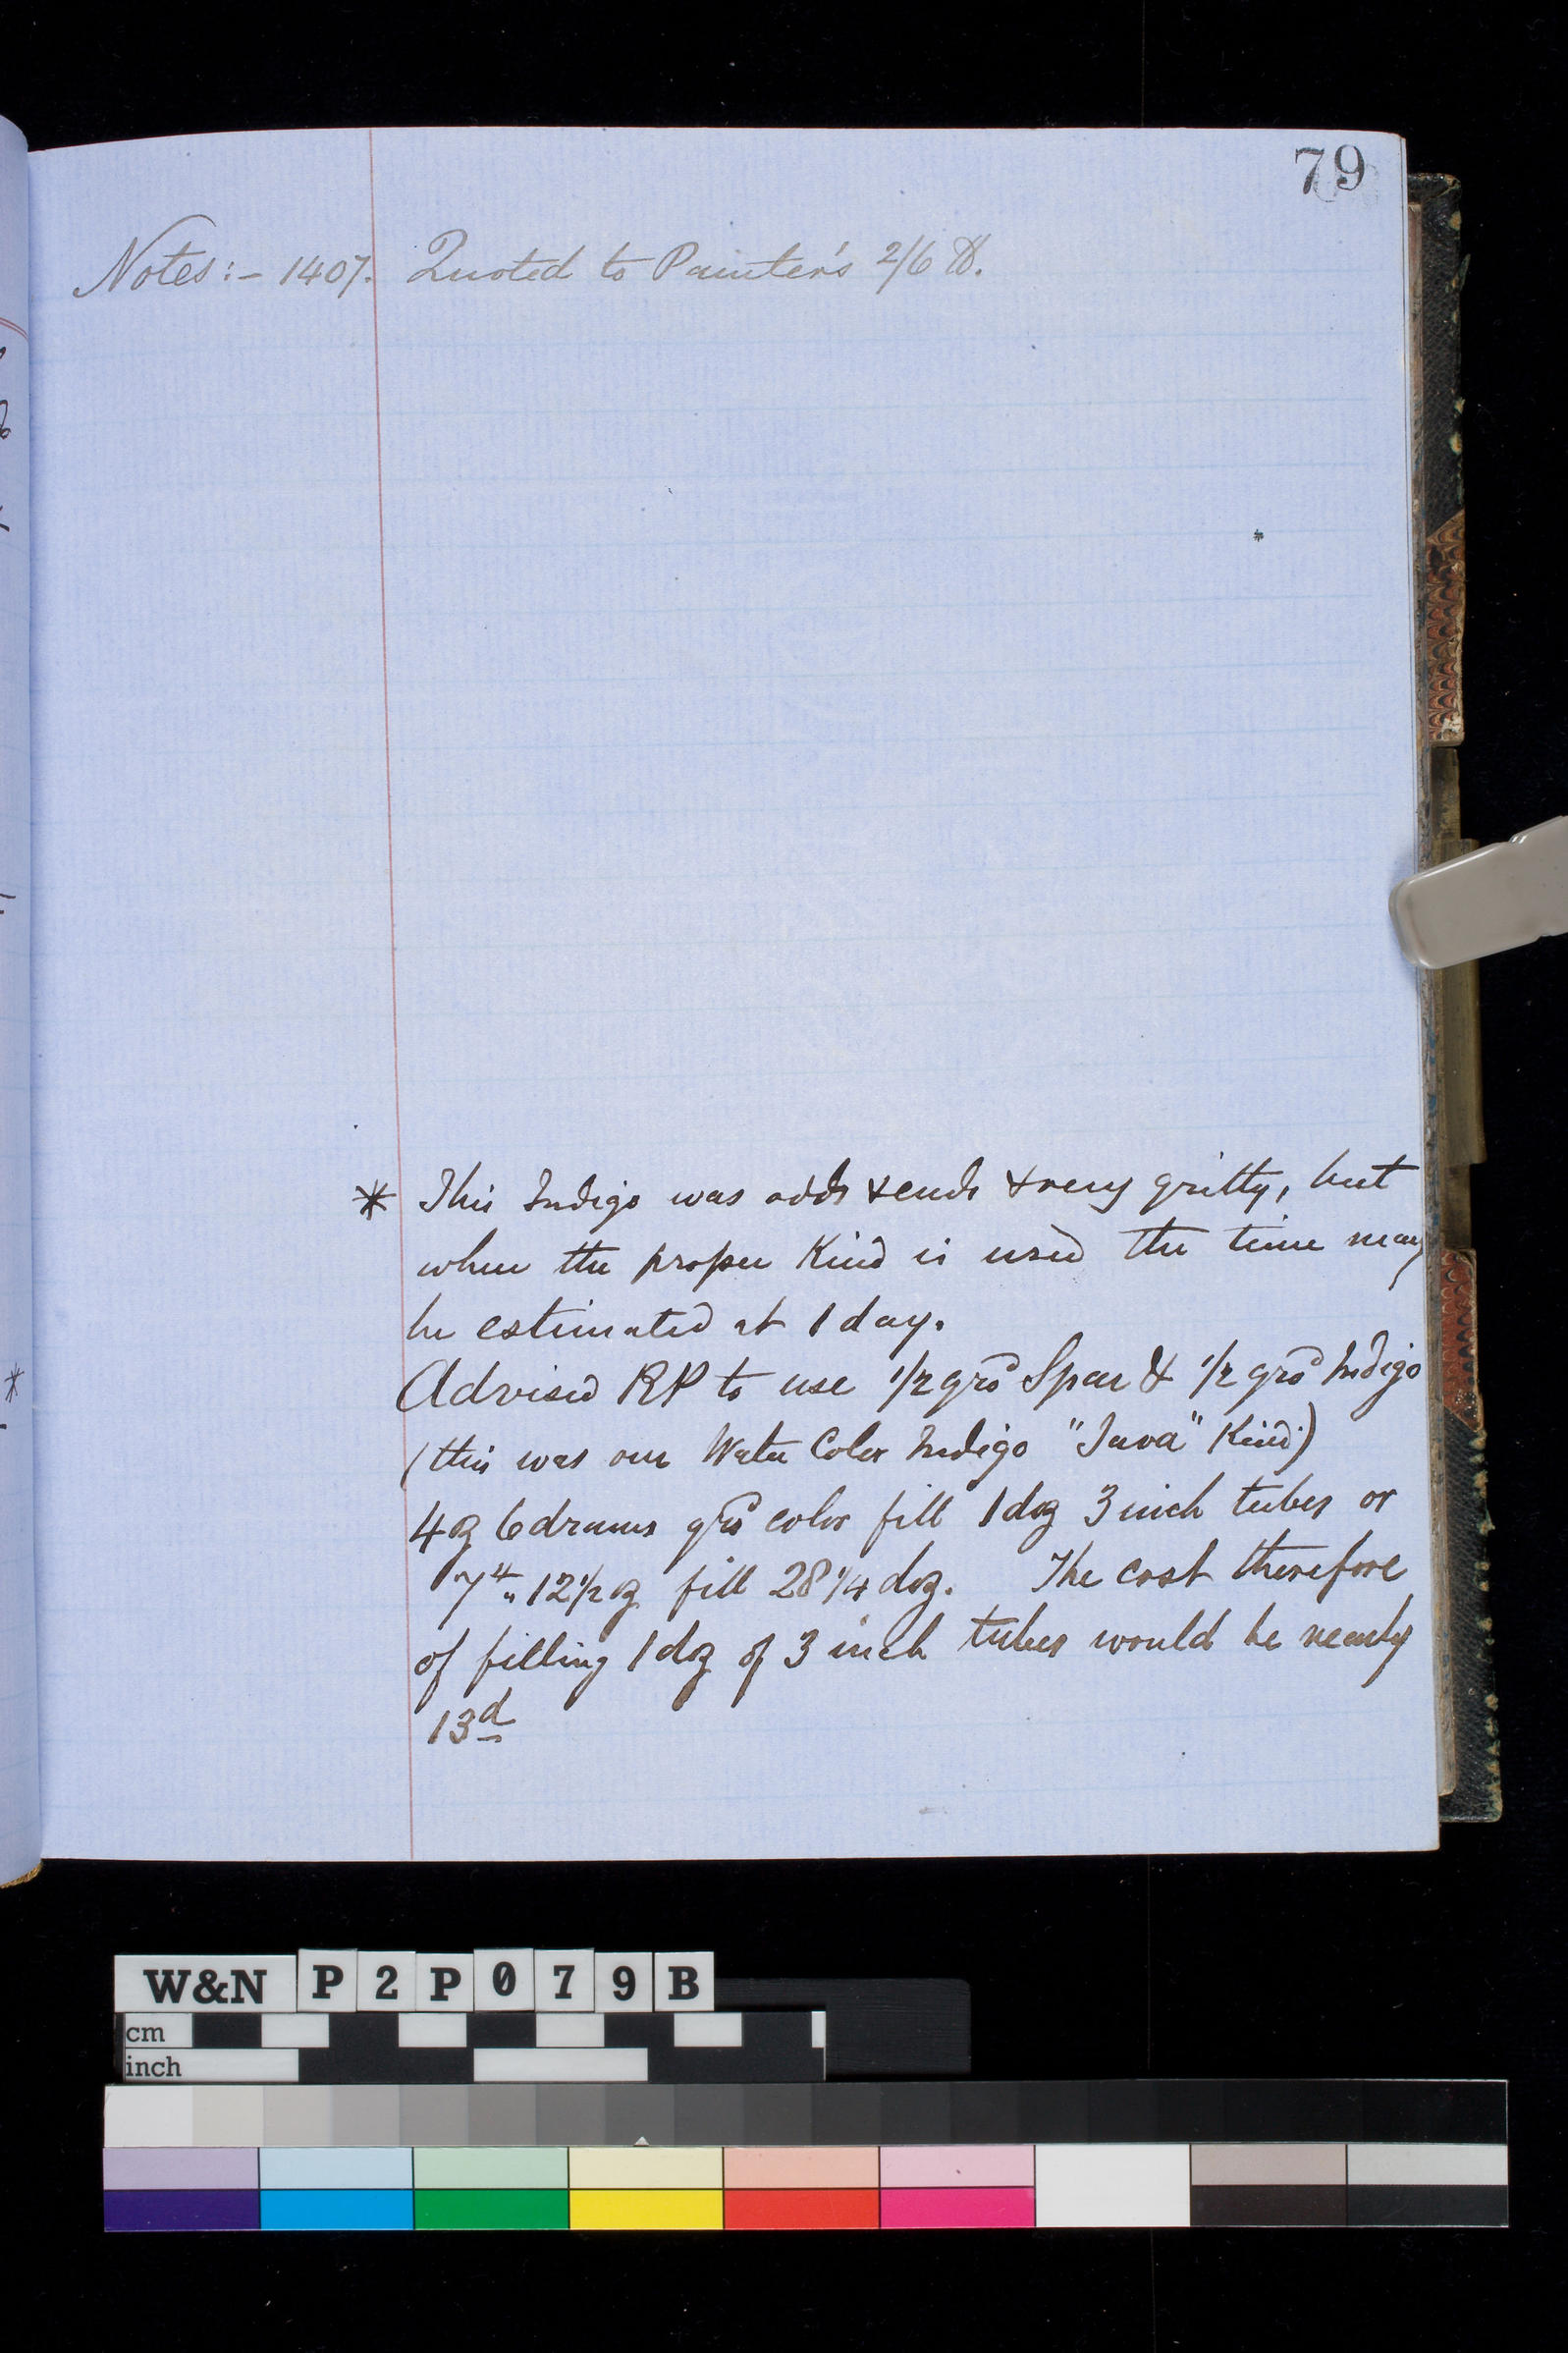 79
Notes:- 1407. Quoted to Painter's 2/6 ℔.
*
* This Indigo was odds & ends & very gritty, but
when the proper Kind is used the time may
be estimated at 1 day.
Advised RP to use 1/2 grd Spar & 1/2 grd Indigo
(this was our Water Color Indigo "Java" Kind.)
4oz 6 drams grd color fill 1 doz 3 inch tubes or
7 ℔ " 12 1/2 oz fill 28 1/4 doz. The cost therefore
of filling 1 doz of 3 inch tubes would be nearly
13d
*
W&N P2P079B
cm
inch